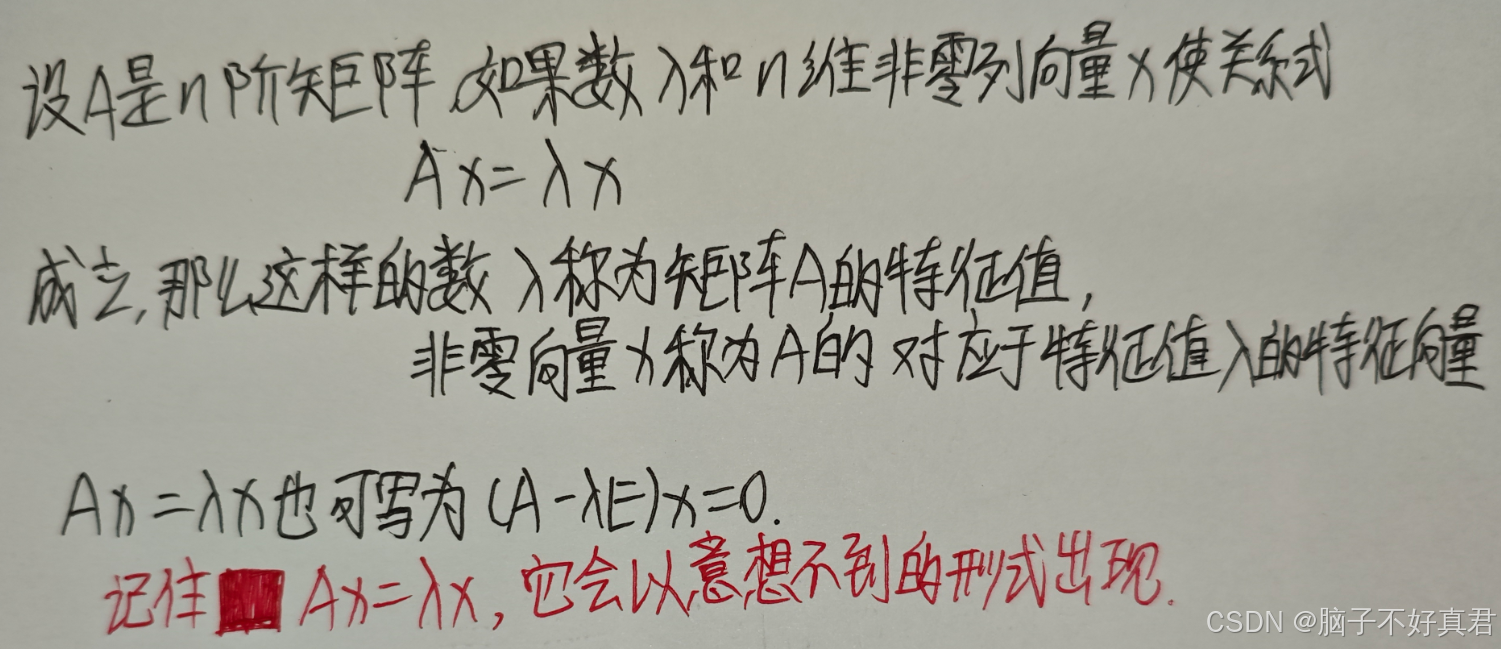 设A是n阶矩阵,如果数λ和n维非零列向量x使关系式
Ax=λx
成立,那么这样的数λ称为矩阵A的特征值,
非零向量x称为A的对应于特征值λ的特征向量
Ax=λx也可写为(A-λE)x=0.
记住 Ax=λx,它会以意想不到的形式出现.
CSDN @脑子不好真君